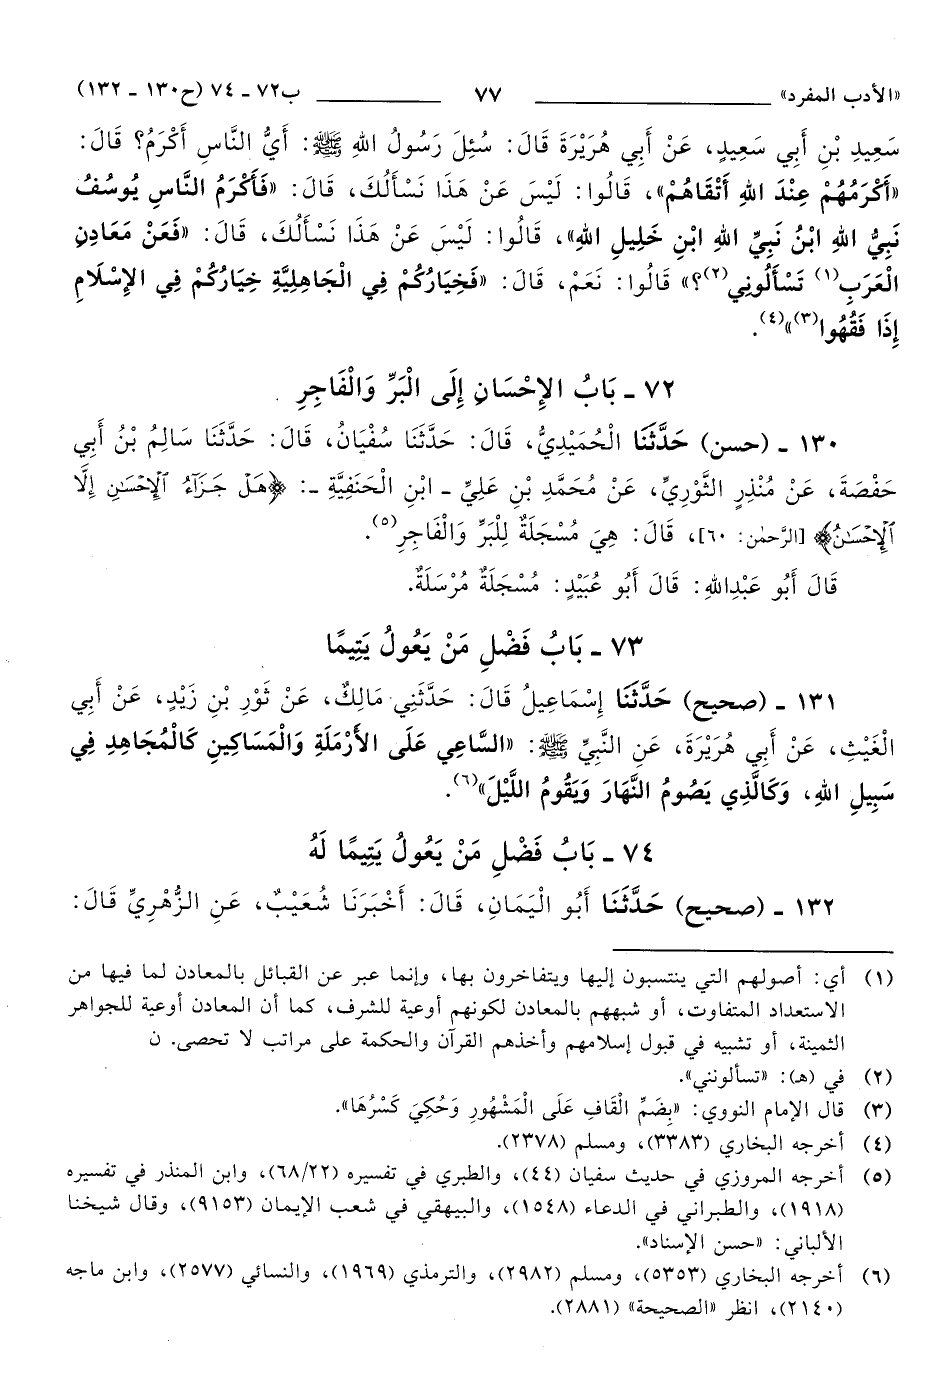 «الأدب المفرد» ٧٧ ب٧٢ - ٧٤ (ح١٣٠ - ١٣٢)
سَعِيدِ بْنِ أَبِي سَعِيدٍ، عَنْ أَبِي هُرَيْرَةَ قَالَ: سُئِلَ رَسُولُ اللهِ ﷺ: أَيُّ النَّاسِ أَكْرَمُ؟ قَالَ:
«أَكْرَمُهُمْ عِنْدَ اللهِ أَتْقَاهُمْ»، قَالُوا: لَيْسَ عَنْ هَذَا نَسْأَلُكَ، قَالَ: «فَأَكْرَمُ النَّاسِ يُوسُفُ
نَبِيُّ اللهِ ابْنُ نَبِيِّ اللهِ ابْنِ خَلِيلِ اللهِ»، قَالُوا: لَيْسَ عَنْ هَذَا نَسْأَلُكَ، قَالَ: «فَعَنْ مَعَادِنِ
الْعَرَبِ(١) تَسْأَلُونِي(٢)؟» قَالُوا: نَعَمْ، قَالَ: «فَخِيَارُكُمْ فِي الْجَاهِلِيَّةِ خِيَارُكُمْ فِي الإِسْلَامِ
إِذَا فَقُهُوا(٣)»(٤).
٧٢ - بَابُ الإِحْسَانِ إِلَى الْبَرِّ وَالْفَاجِرِ
١٣٠ - (حسن) حَدَّثَنَا الْحُمَيْدِيُّ، قَالَ: حَدَّثَنَا سُفْيَانُ، قَالَ: حَدَّثَنَا سَالِمُ بْنُ أَبِي
حَفْصَةَ، عَنْ مُنْذِرٍ الثَّوْرِيِّ، عَنْ مُحَمَّدِ بْنِ عَلِيٍّ - ابْنِ الْحَنَفِيَّةِ -: ﴿هَلْ جَزَآءُ ٱلْإِحْسَٰنِ إِلَّا
ٱلْإِحْسَٰنُ﴾ [الرَّحمٰن: ٦٠]، قَالَ: هِيَ مُسْجَلَةٌ لِلْبَرِّ وَالْفَاجِرِ(٥).
قَالَ أَبُو عَبْدِاللهِ: قَالَ أَبُو عُبَيْدٍ: مُسْجَلَةٌ مُرْسَلَةٌ.
٧٣ - بَابُ فَضْلِ مَنْ يَعُولُ يَتِيمًا
١٣١ - (صحيح) حَدَّثَنَا إِسْمَاعِيلُ قَالَ: حَدَّثَنِي مَالِكٌ، عَنْ ثَوْرِ بْنِ زَيْدٍ، عَنْ أَبِي
الْغَيْثِ، عَنْ أَبِي هُرَيْرَةَ، عَنِ النَّبِيِّ ﷺ: «السَّاعِي عَلَى الأَرْمَلَةِ وَالْمَسَاكِينِ كَالْمُجَاهِدِ فِي
سَبِيلِ اللهِ، وَكَالَّذِي يَصُومُ النَّهَارَ وَيَقُومُ اللَّيْلَ»(٦).
٧٤ - بَابُ فَضْلِ مَنْ يَعُولُ يَتِيمًا لَهُ
١٣٢ - (صحيح) حَدَّثَنَا أَبُو الْيَمَانِ، قَالَ: أَخْبَرَنَا شُعَيْبٌ، عَنِ الزُّهْرِيِّ قَالَ:
(١) أي: أصولهم التي ينتسبون إليها ويتفاخرون بها، وإنما عبر عن القبائل بالمعادن لما فيها من
الاستعداد المتفاوت، أو شبههم بالمعادن لكونهم أوعية للشرف، كما أن المعادن أوعية للجواهر
الثمينة، أو تشبيه في قبول إسلامهم وأخذهم القرآن والحكمة على مراتب لا تحصى. ن
(٢) في (هـ): «تسألونني».
(٣) قال الإمام النووي: «بِضَمِّ الْقَافِ عَلَى الْمَشْهُورِ وَحُكِيَ كَسْرُهَا».
(٤) أخرجه البخاري (٣٣٨٣)، ومسلم (٢٣٧٨).
(٥) أخرجه المروزي في حديث سفيان (٤٤)، والطبري في تفسيره (٦٨/٢٢)، وابن المنذر في تفسيره
(١٩١٨)، والطبراني في الدعاء (١٥٤٨)، والبيهقي في شعب الإيمان (٩١٥٣)، وقال شيخنا
الألباني: «حسن الإسناد».
(٦) أخرجه البخاري (٥٣٥٣)، ومسلم (٢٩٨٢)، والترمذي (١٩٦٩)، والنسائي (٢٥٧٧)، وابن ماجه
(٢١٤٠)، انظر «الصحيحة» (٢٨٨١).